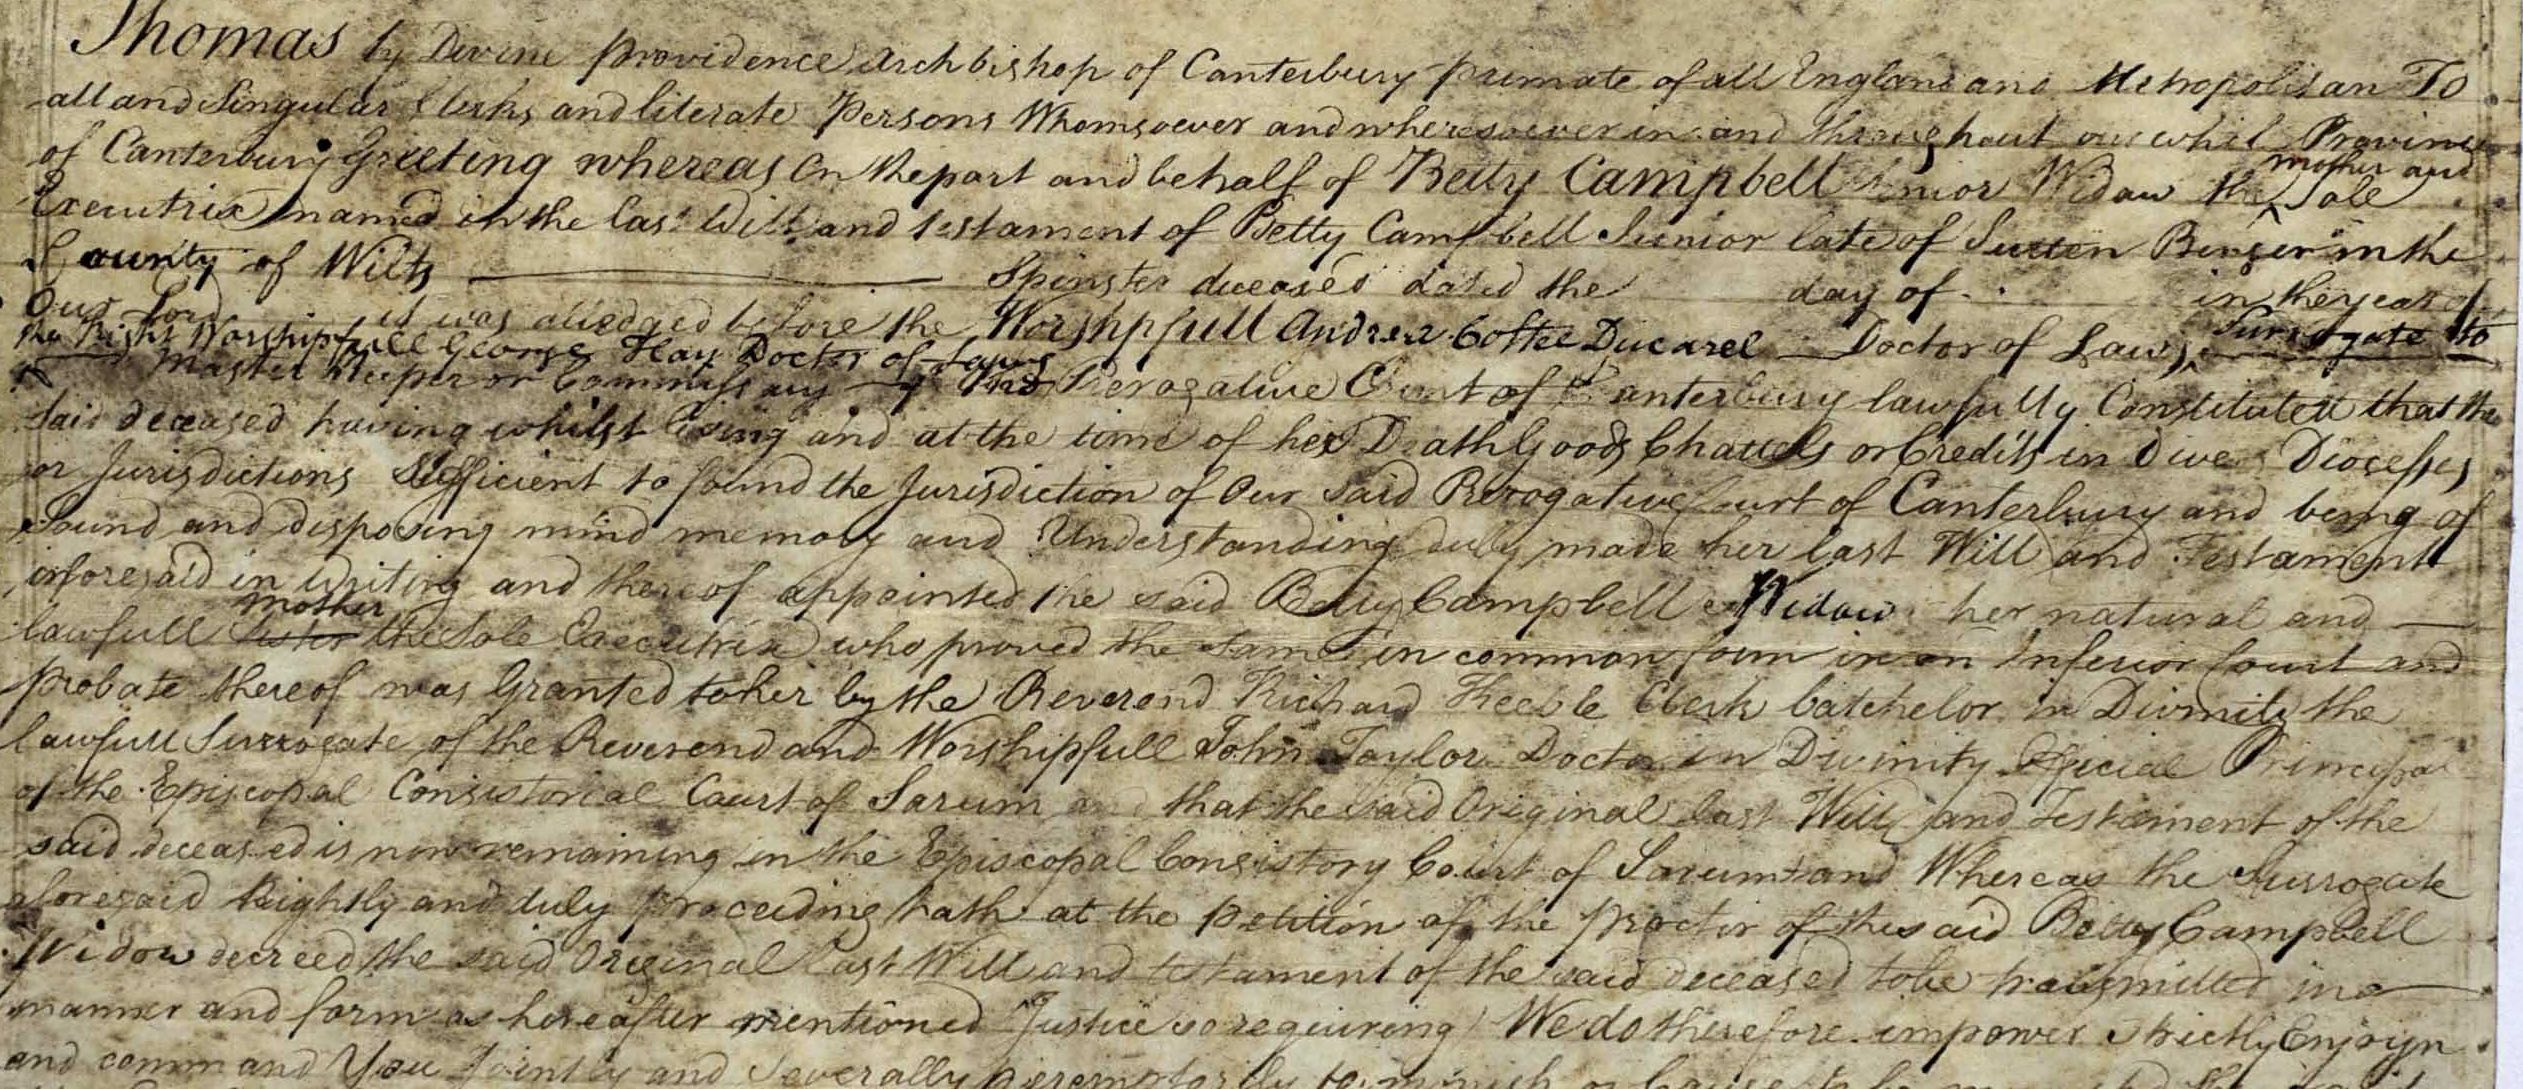 Thomas by Devine providence Archbishop of Canterbury primate of all England and Metropolitan To
all and Singular Clerks and literate Persons Whomsoever and wheresoever in and throughout our whol Province
of Canterbury Greeting whereas On the part and behalf of Betty Campbell Widow the mother and Sole
Executrix named in the last Will and testament of Betty Campbell Junior late of Sutton Benger in the
County of Wilts Spinster deceased dated the day of in the year of
Our Lord it was alledged before the Worshpfull Andrew Coltee Ducarel Doctor of Laws Surrogate to
the Right Worshipfull George Hay Doctor of Laws
Master Keeper or Commissary of the Prerogative Court of Canterbury lawfully Constituted that the
said deceased having whilst living and at the time of her Death Goods Chattels or Credits in divers Diocesses
or Jurisdictions Sufficient to found the Jurisdiction of Our said Prerogative Court of Canterbury and being of
sound and disposing mind memory and Understanding duly made her last Will and Testament
aforesaid in writing and thereof appointed the said Betty Campbell Widow her natural and
lawfull sister mother the Sole Executrix who proved the same in common form in an Inferior Court and
probate thereof was Granted to her by the Reverend Richard Keeble Clerk batchelor in Divinity the
lawfull Surrogate of the Reverend and Worshipfull John Taylor Doctor in Divinity Official Principal
of the Episcopal Consistorial Court of Sarum and that the said Original last Will and Testament of the
said deceased is now remaining in the Episcopal Consistory Court of Sarum and Whereas the Surrogate
aforesaid Rightly and duly proceeding hath at the petition of the proctor of the said Betty Campbell
Widow decreed the said Original last Will and testament of the said deceased to be transmitted in
manner and form as hereafter mentioned Justice so requiring We do therefore impower strictly Enjoyn
and command You Jointly and severally peremptorily to